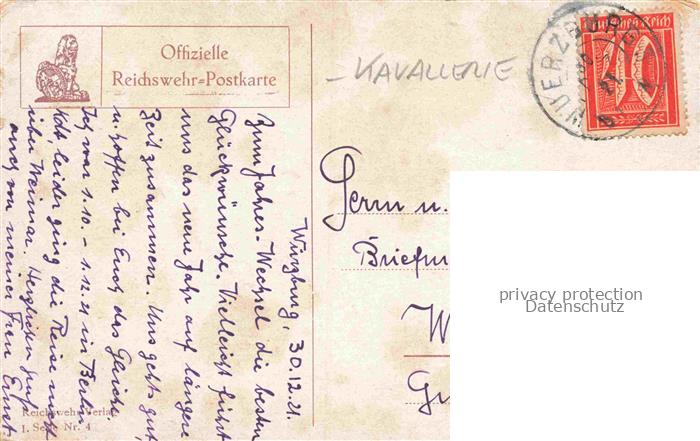 Offizielle
Reichswehr=Postkarte
KAVALLERIE
Deutsches Reich
10
WUERZBURG
Würzburg, 30.12.21.
Zum Jahres-Wechsel die besten
Glückwünsche. Vielleicht führt
uns das neue Jahr auf längere
Zeit zusammen. Uns gehts gut,
u. hoffen bei Euch das Gleiche.
Ich war 1.10. - 1.12.21 in Berlin
leider ging die Reise nicht
über Weimar. Herzlichen Gruß
auch von meiner Frau Ernst.
Herrn u.
Briefm
W
Gu
privacy protection
Datenschutz
Reichswehr-Verlag
1. Serie Nr. 4